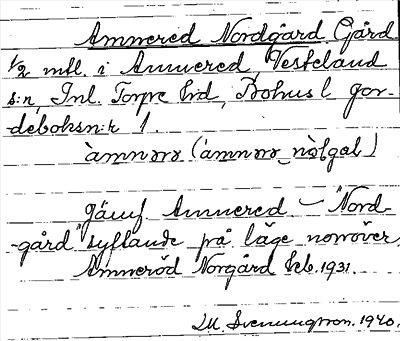 Amnered Nordgård. Gård.
1/2 mtl. i Amnered Vesteland
s:n, Inl. Torpe hrd, Bohusl. jor-
deboksn:r 1.
àmnrrr (àmnrrr_nòlgal)
Jämf. Amnered – "Nord-
-gård" syftande på läge norröver.
Amneröd Norgård Leb. 1931.
M. Svenungsson. 1940.